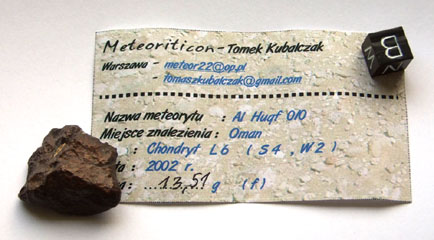 Meteoriticon - Tomek Kubalczak
Warszawa - meteor22@op.pl
tomaszkubalczak@gmail.com
Nazwa meteorytu : Al Huqf 010
Miejsce znalezienia : Oman
: Chondryt L6 (S4, W2)
: 2002 r.
: ...13,51 g (f)
B